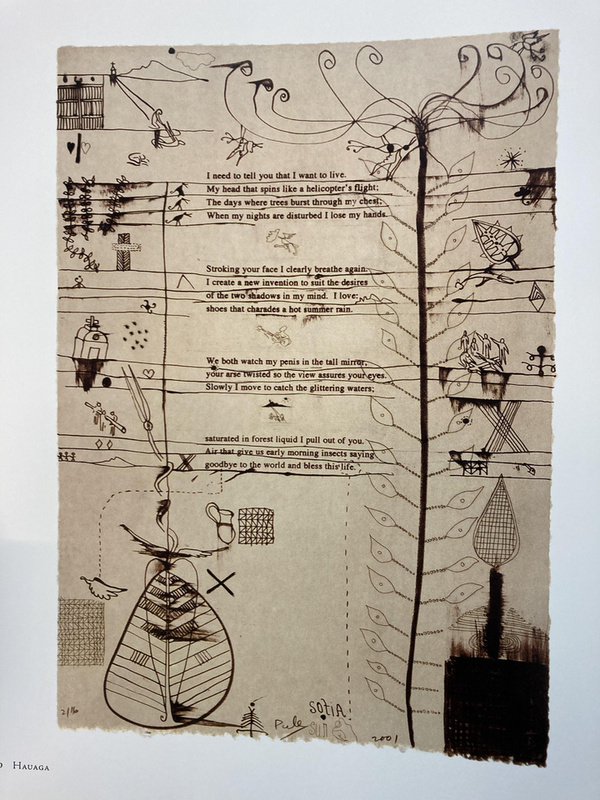 I need to tell you that I want to live.
My head that spins like a helicopter's flight;
The days where trees burst through my chest;
When my nights are disturbed I lose my hands.
Stroking your face I clearly breathe again.
I create a new invention to suit the desires
of the two shadows in my mind. I love;
shoes that charades a hot summer rain.
We both watch my penis in the tall mirror,
your arse twisted so the view assures your eyes.
Slowly I move to catch the glittering waters;
saturated in forest liquid I pull out of you.
Air that give us early morning insects saying
goodbye to the world and bless this life.
SOFIA
Pule
2001
HAUAGA